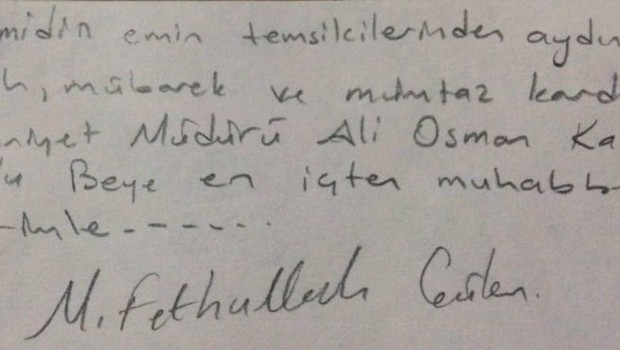 midin emin temsilcilerinden aydın
h, mübarek ve mümtaz kard
niyet Müdürü Ali Osman Ka
u Beye en içten muhabb
imle-------
M. Fethullah Gülen.